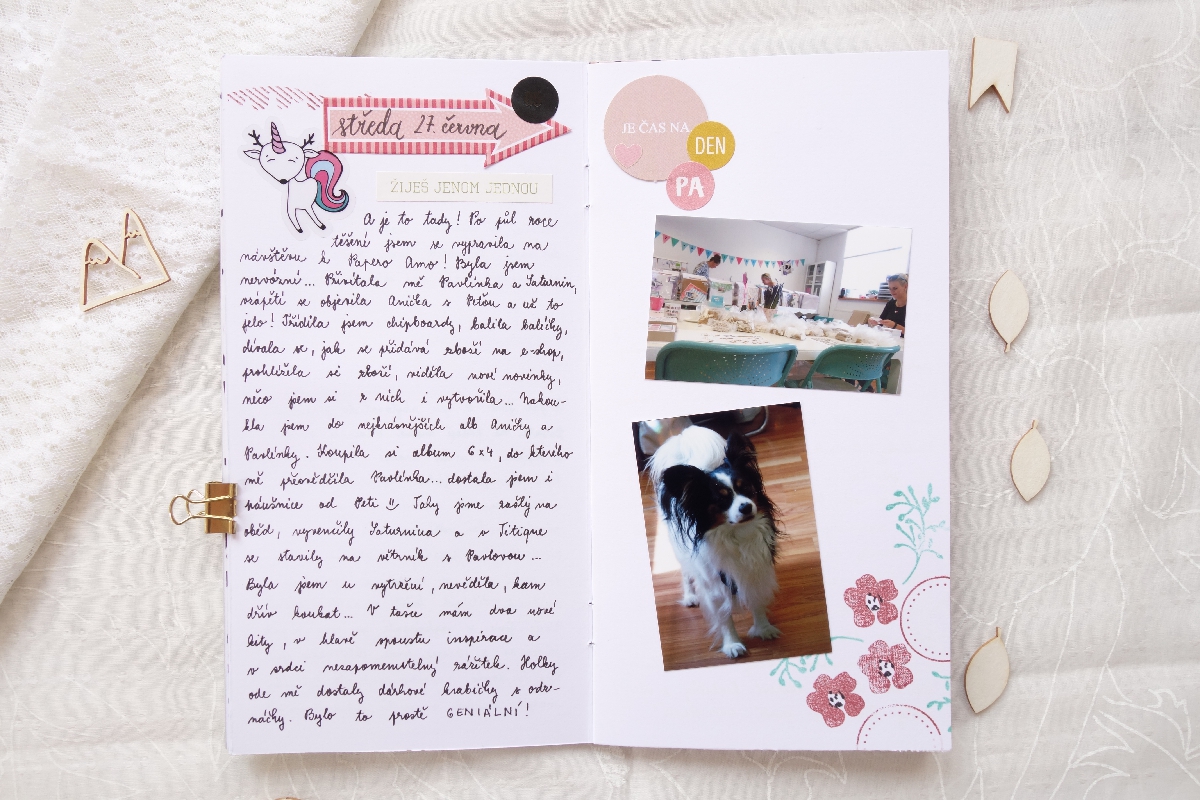 středa 27. června
ŽIJEŠ JENOM JEDNOU
A je to tady! Po půl roce
těšení jsem se vypravila na
návštěvu k Papero Amo! Byla jsem
nervózní... Přivítala mě Pavlínka a Saturnin,
vzápětí se objevila Anička s Péťou a už to
jelo! Třídila jsem chipboardy, balila balíčky,
dívala se, jak se přidává zboží na e-shop,
prohlížela si zboží, viděla nové novinky,
něco jsem si z nich i vytvořila... Nakou-
kla jsem do nejkrásnějších alb Aničky a
Pavlínky. Koupila si album 6x4, do kterého
mě přesvědčila Pavlínka... dostala jsem i
náušnice od Peti Taky jsme zašly na
oběd, vyvenčily Saturnina a v Titique
se stavily na větrník s Pavlovou...
Byla jsem u vytržení, nevěděla, kam
dřív koukat... V tašce mám dva nové
kity, v hlavě spoustu inspirace a
v srdci nezapomenutelný zážitek. Holky
ode mě dostaly dárkové krabičky s odz-
náčky. Bylo to prostě GENIÁLNÍ!
JE ČAS NA
DEN
PA